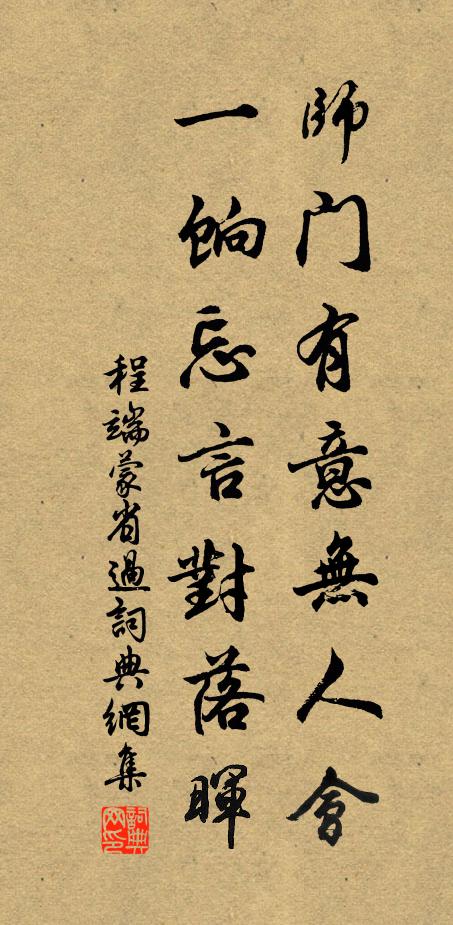 師門有意無人會
一餉忘言對落暉
程端蒙省過詞典網集
詞典网印